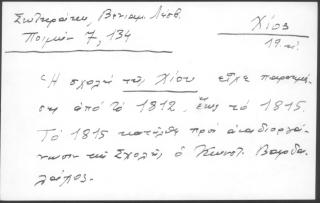 Σωτηράκη, Βενιαμ. Λεσβ.
Ποιμήν 7, 134
Χίος
19 αἰ.
Ἡ σχολὴ τῆς Χίου εἶχε παρακμά-
σει ἀπὸ τὸ 1812, ἕως τὸ 1815.
Τὸ 1815 κατῆλθε πρὸς ἀναδιοργά-
νωσιν τῆς Σχολῆς ὁ Κωνστ. Βαρδα-
λάχος.